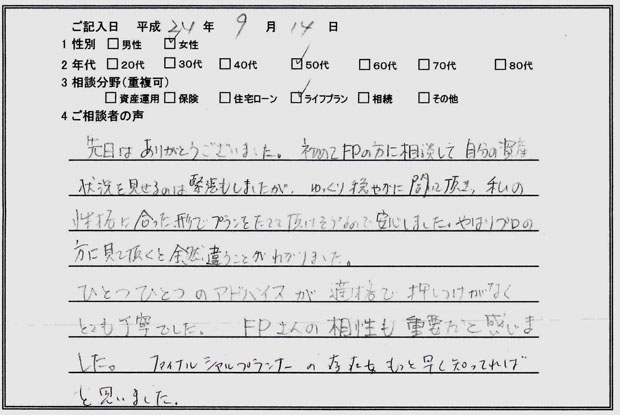 ご記入日 平成 24 年 9 月 14 日
1 性別 □男性 ☑女性
2 年代 □20代 □30代 □40代 ☑50代 □60代 □70代 □80代
3 相談分野(重複可)
□資産運用 □保険 □住宅ローン ☑ライフプラン □相続 □その他
4 ご相談者の声
先日は ありがとうございました。 初めてFPの方に相談して 自分の資産
状況を見せるのは緊張もしましたが、ゆっくり穏やかに聞いて頂き、私の
性格に合った形でプランをたてて頂けそうなので安心しました。やはりプロの
方に見て頂くと全然違うことがわかりました。
ひとつひとつのアドバイスが 適格で 押しつけがなく
とても丁寧でした。 FPさんの相性も重要だと感じま
した。 ファイナルシャルプランナーの存在をもっと早く知ってれば
と思いました。